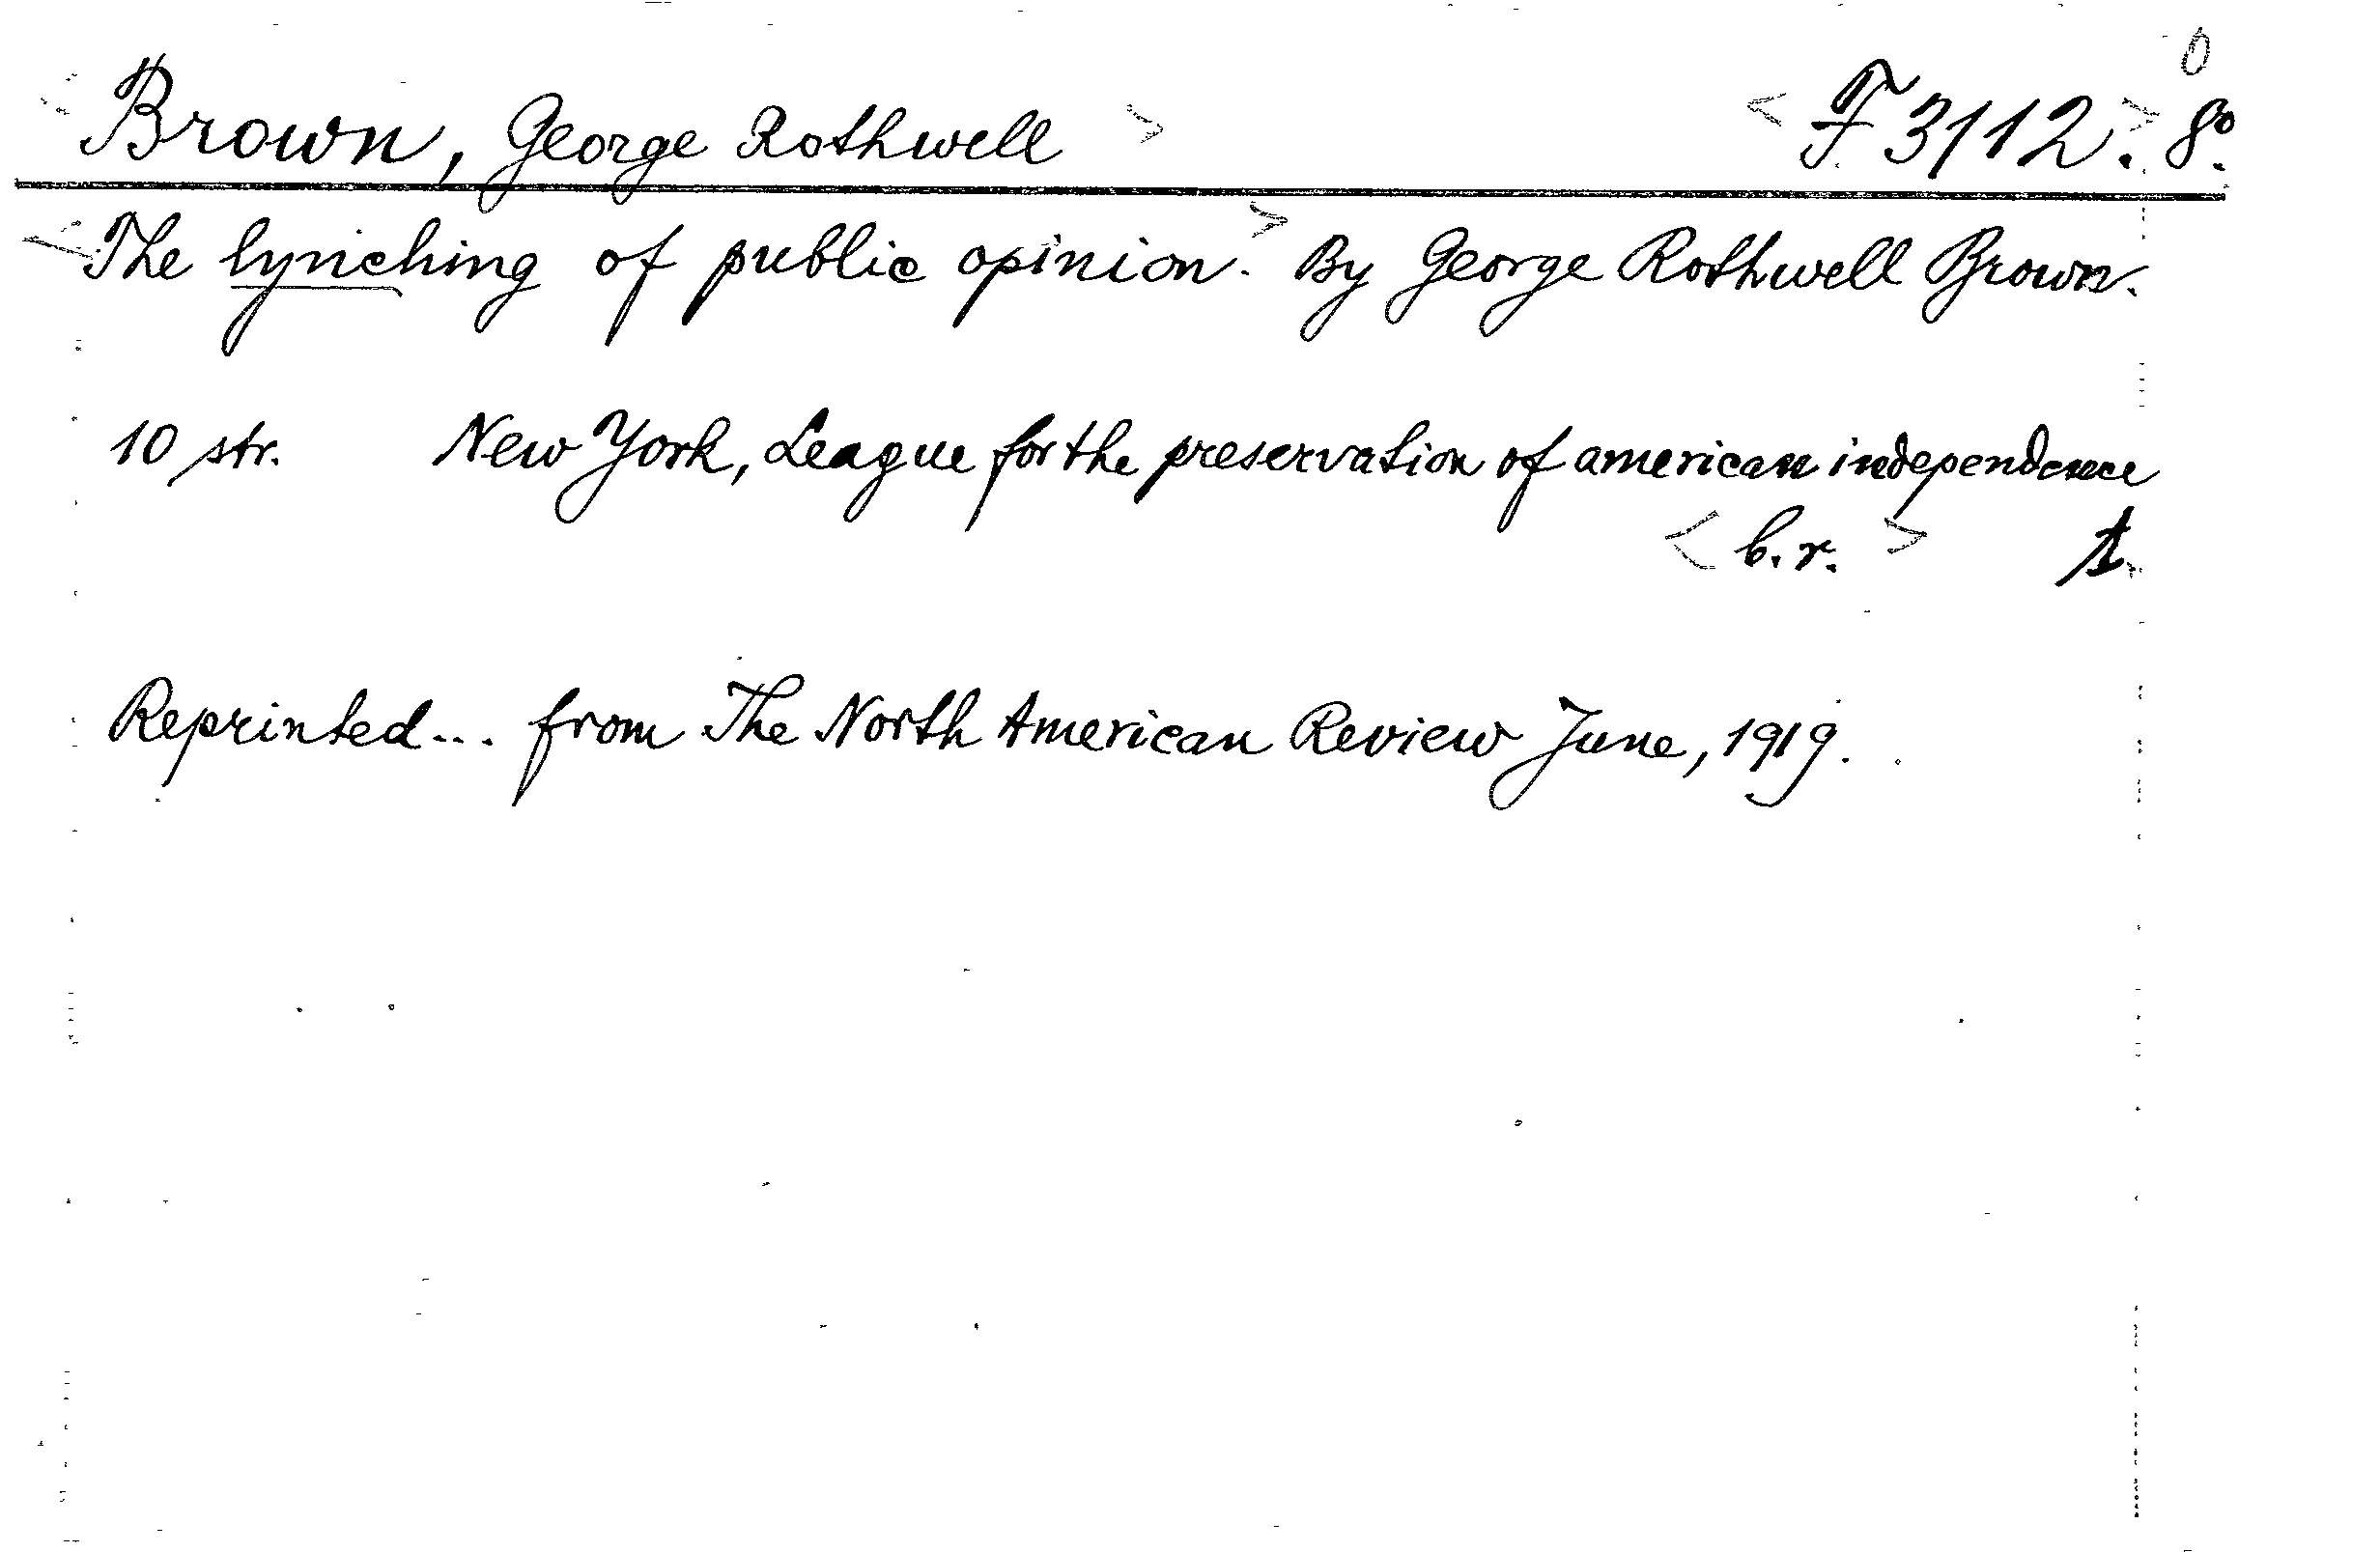 Brown, George Rothwell > < F 3112. > 8º.
<The lynching of public opinion.> By George Rothwell Brown.
10 str. New York, League for the preservation of american independence
< b.r. >
Reprinted... from The North American Review June, 1919.